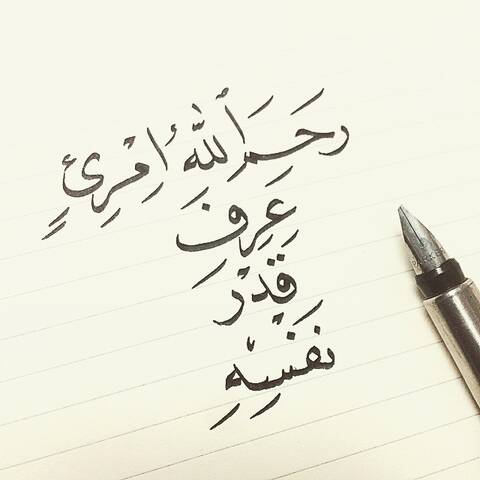 رَحِمَ ٱللَّهُ ٱمْرِئٍ
عَرِفَ
قَدْرَ
نَفْسِهِ